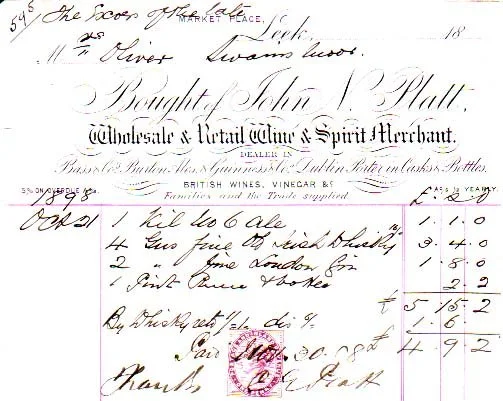 595 The Excors of the late
MARKET PLACE,
Leek, 18
Mrs Oliver Swainsmoor.
Bought of John N. Platt,
Wholesale & Retail Wine & Spirit Merchant.
DEALER IN
Bass & Co's Burton Ales, & Guinness & Co's Dublin Porter, in Casks & Bottles.
BRITISH WINES, VINEGAR &c
5% ON OVERDUE A/cs. Families and the Trade supplied. A/cs ½ YEARLY.
1898 £. s. d
Oct 21 1 Kil No 6 Ale 1. 1. 0
4 Gns fine Old Irish Whisky 16/ 3. 4. 0
2 " fine London Gin 1. 8. 0
1 Pint 2. 2
£ 5. 15. 2
By Whisky retd 1. 6.
Paid Nov. 30. 98 £ 4. 9. 2
Thanks Platt